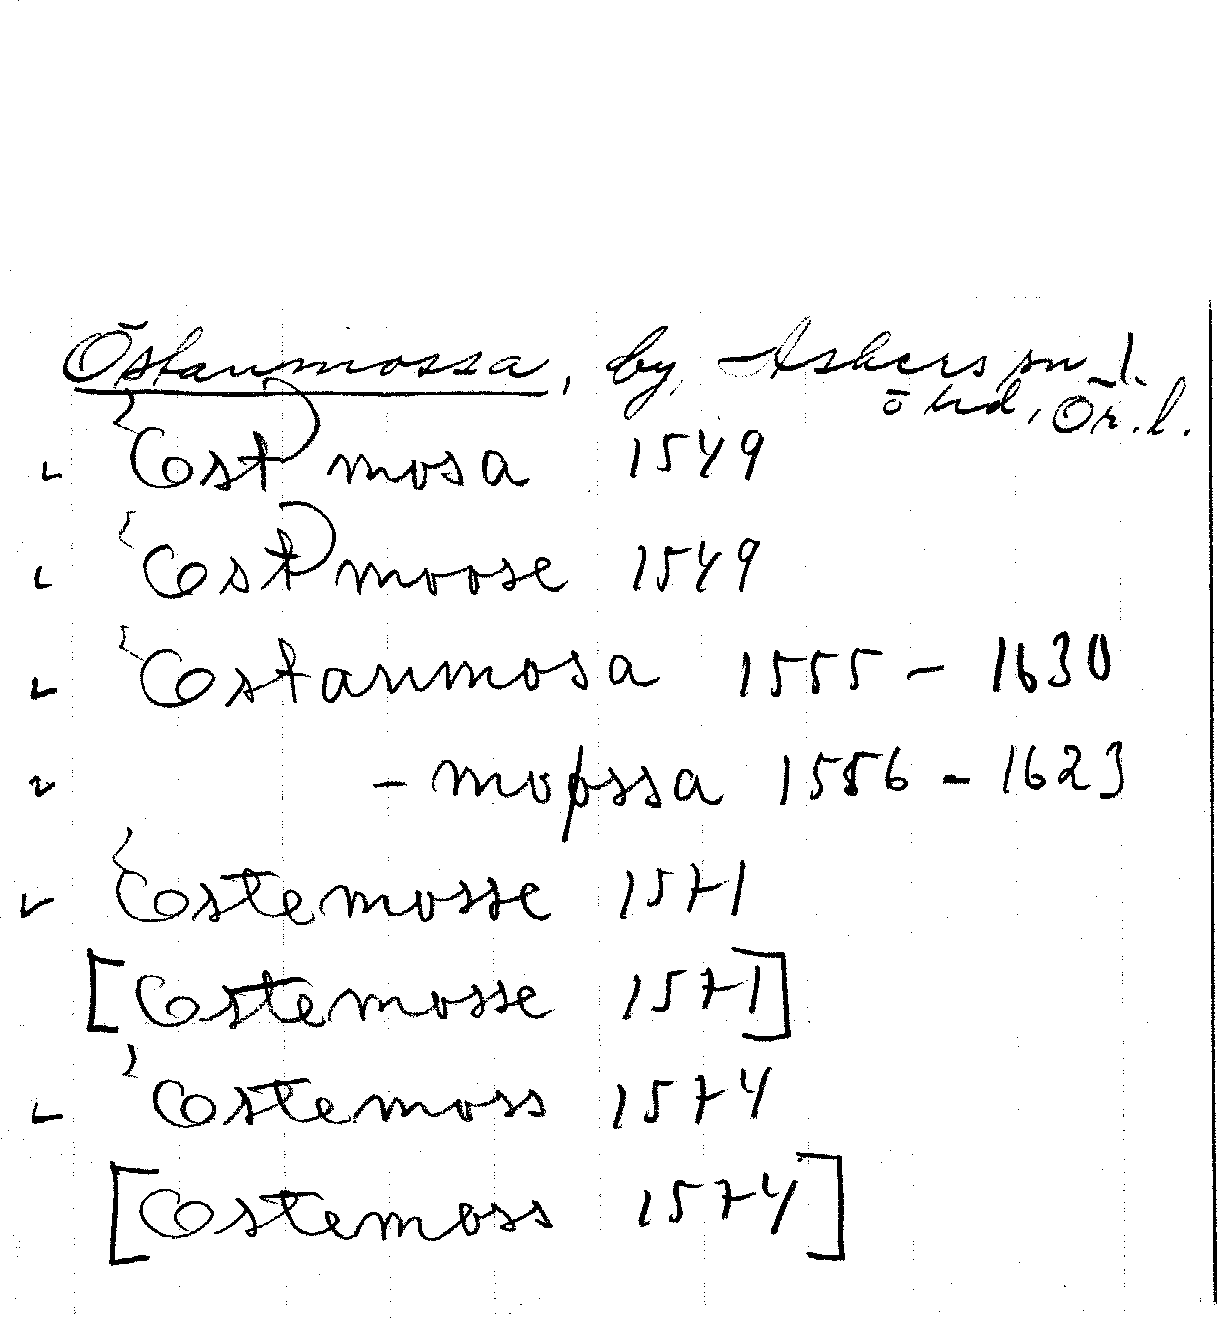 Östanmossa, by, Askers sn
ö hd, Ör. l.
Œst mosa 1549
Œst moose 1549
Œstanmosa 1555 - 1630
- mossa 1556 - 1623
Œstemosse 1571
[Œstemosse 1571]
Œstemoss 1574
[Œstemoss 1574]